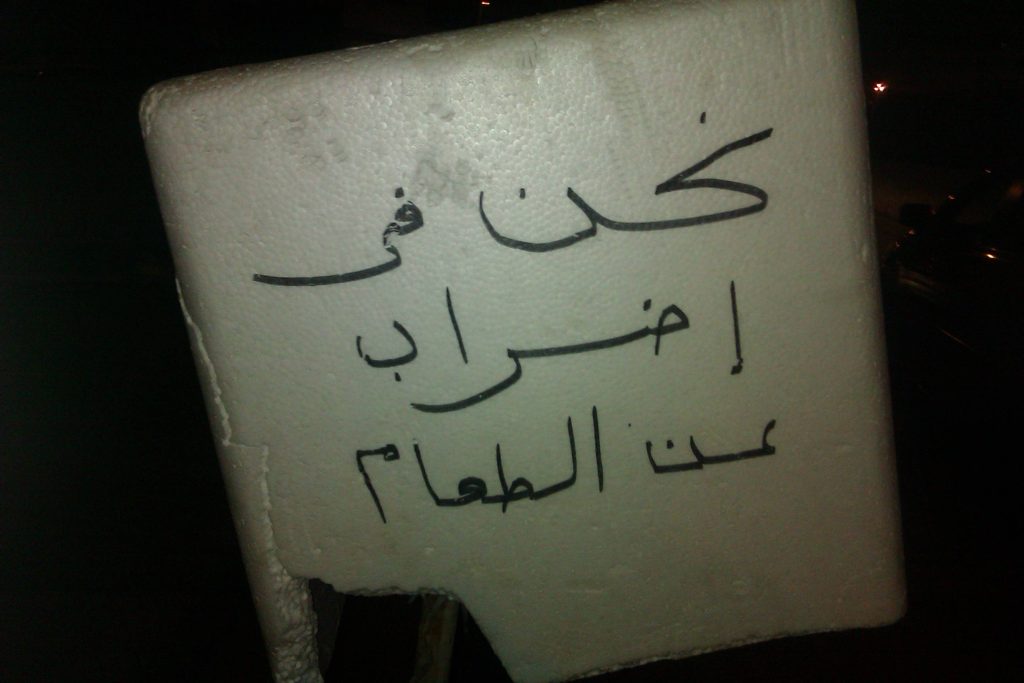 نحن فى
إضراب
عن الطعام